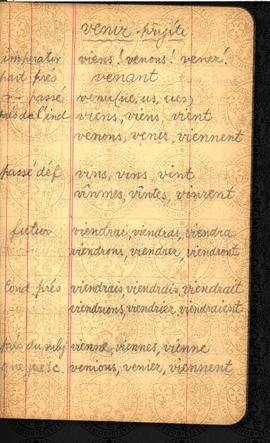 venir - přijíti
imperativ viens! venons! venez!
part prés venant
" - passé venu (ue, us, ues)
prés de l'ind viens, viens, vient
venons, venez, viennent
passé déf vins, vins, vint
vînmes, vîntes, vinrent
futur viendrai, viendras, viendra
viendrons, viendrez, viendront
Cond prés viendrais, viendrais, viendrait
viendrions, viendriez, viendraient
prés du subj vienne, viennes, vienne
que je etc. venions, veniez, viennent